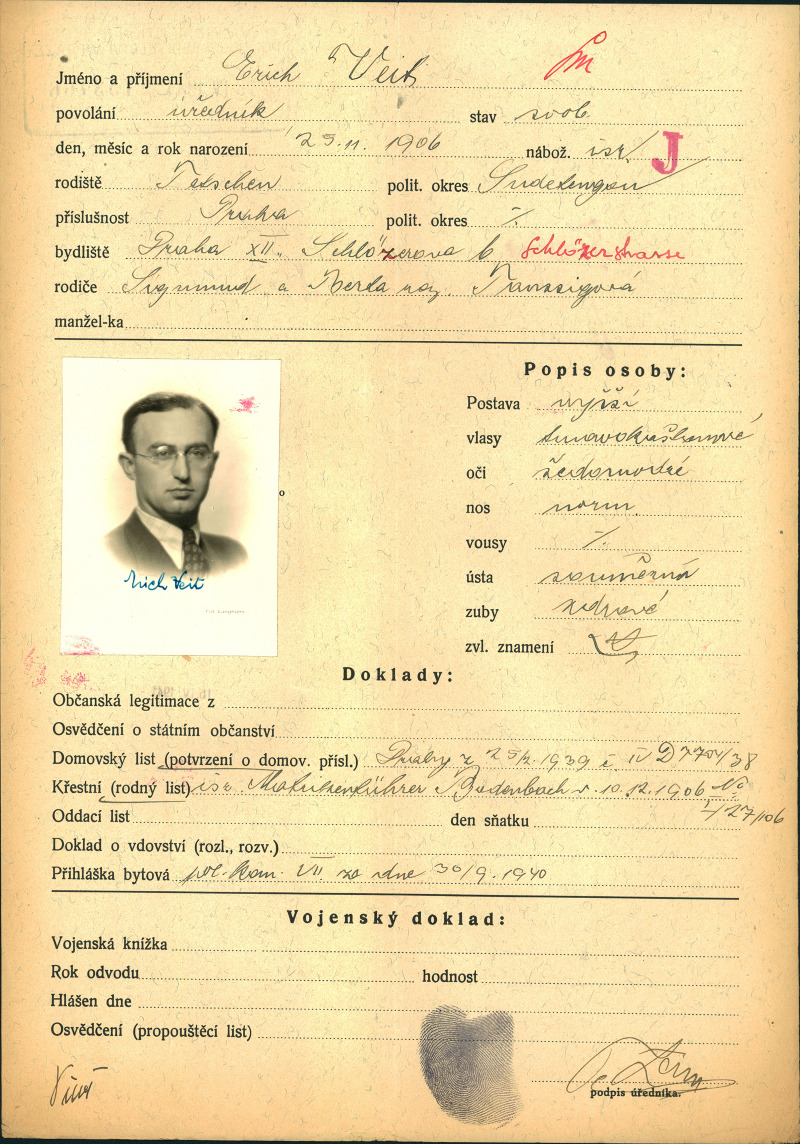 Jméno a příjmení Erich Veit
povolání úředník stav svob.
den, měsíc a rok narození 29.11. 1906 nábož. isr. J
rodiště Tetschen polit. okres Sudetengau
příslušnost Praha polit. okres %
bydliště Praha XII., Schlözerova 6 Schlözerstrasse
rodiče Sigmund a Berta roz. Taussigová
manžel-ka
Popis osoby:
Postava vyšší
vlasy tmavokaštanové
oči šedomodré
nos norm.
vousy %
ústa souměrná
zuby zdravé
zvl. znamení
Erich Veit
Doklady:
Občanská legitimace z
Osvědčení o státním občanství
Domovský list (potvrzení o domov. přísl.) Prahy z 1939 č. IV D 38
Křestní (rodný list) isr. Matrikenführer Bodenbach v. 10.12.1906 No
I/27/06
Oddací list den sňatku
Doklad o vdovství (rozl., rozv.)
Přihláška bytová pol. kom. VII. ze dne 30/9. 1940
Vojenský doklad:
Vojenská knížka
Rok odvodu hodnost
Hlášen dne
Osvědčení (propouštěcí list)
podpis úředníka.